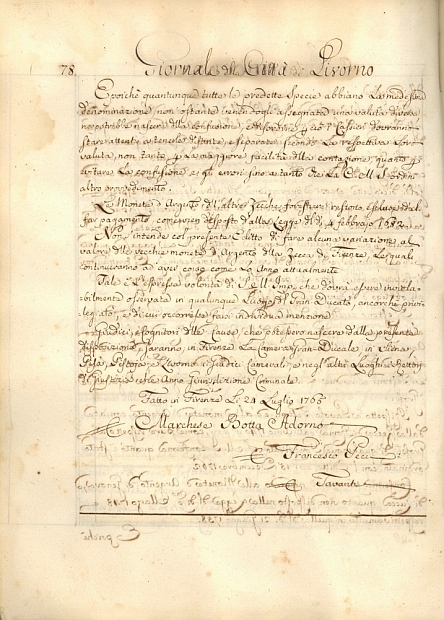 78. Giornale di Città di Livorno
E poichè quantunque tutte le predette Specie abbiano la medesima
denominazione non ostante essendogli assegnata una valuta diversa
potrebbe nascere della confusione, i Cassieri dovranno
stare attenti a tenerle distinte, e separate secondo la respettiva loro
valuta, non tanto p la maggiore facilità della contazione, quanto p
evitare la confusione, e gli errori sino a tanto che la C. M. S. ordini
altro provvedimento.
Le Monete d'Argento dell'altre Zecche forestiere restono escluse dal
far pagamento come vien disposto dalla Legge del dì 4 febbraio
Non s'intende col presente Editto di fare alcuna variazione al
valore delle vecchie monete d'Argento della Zecca di Firenze, le quali
continueranno a aver corso come lo anno attualmente
Tale è l'espressa volontà di S. M. Imp. che dovrà essere inviola-
bilmente osservata in qualunque Luogo del Gran Ducato, ancorchè privi-
legiato, e di cui occorresse farsi individua menzione
Giudici, e cognitori delle cause, che potessero nascere dalla presente
disposizione, saranno in Firenze la Camera Gran-Ducale, in Siena,
Pisa, Pistoja, e Livorno i Giudici Camerali, e negl'altri Luoghi i Rettori
di Giustizia che Anno Giurisdizione Criminale.
Fatto in Firenze Li 21 Luglio 1765
Marchese Botta Adorno
Francesco Pecci
Tavanti